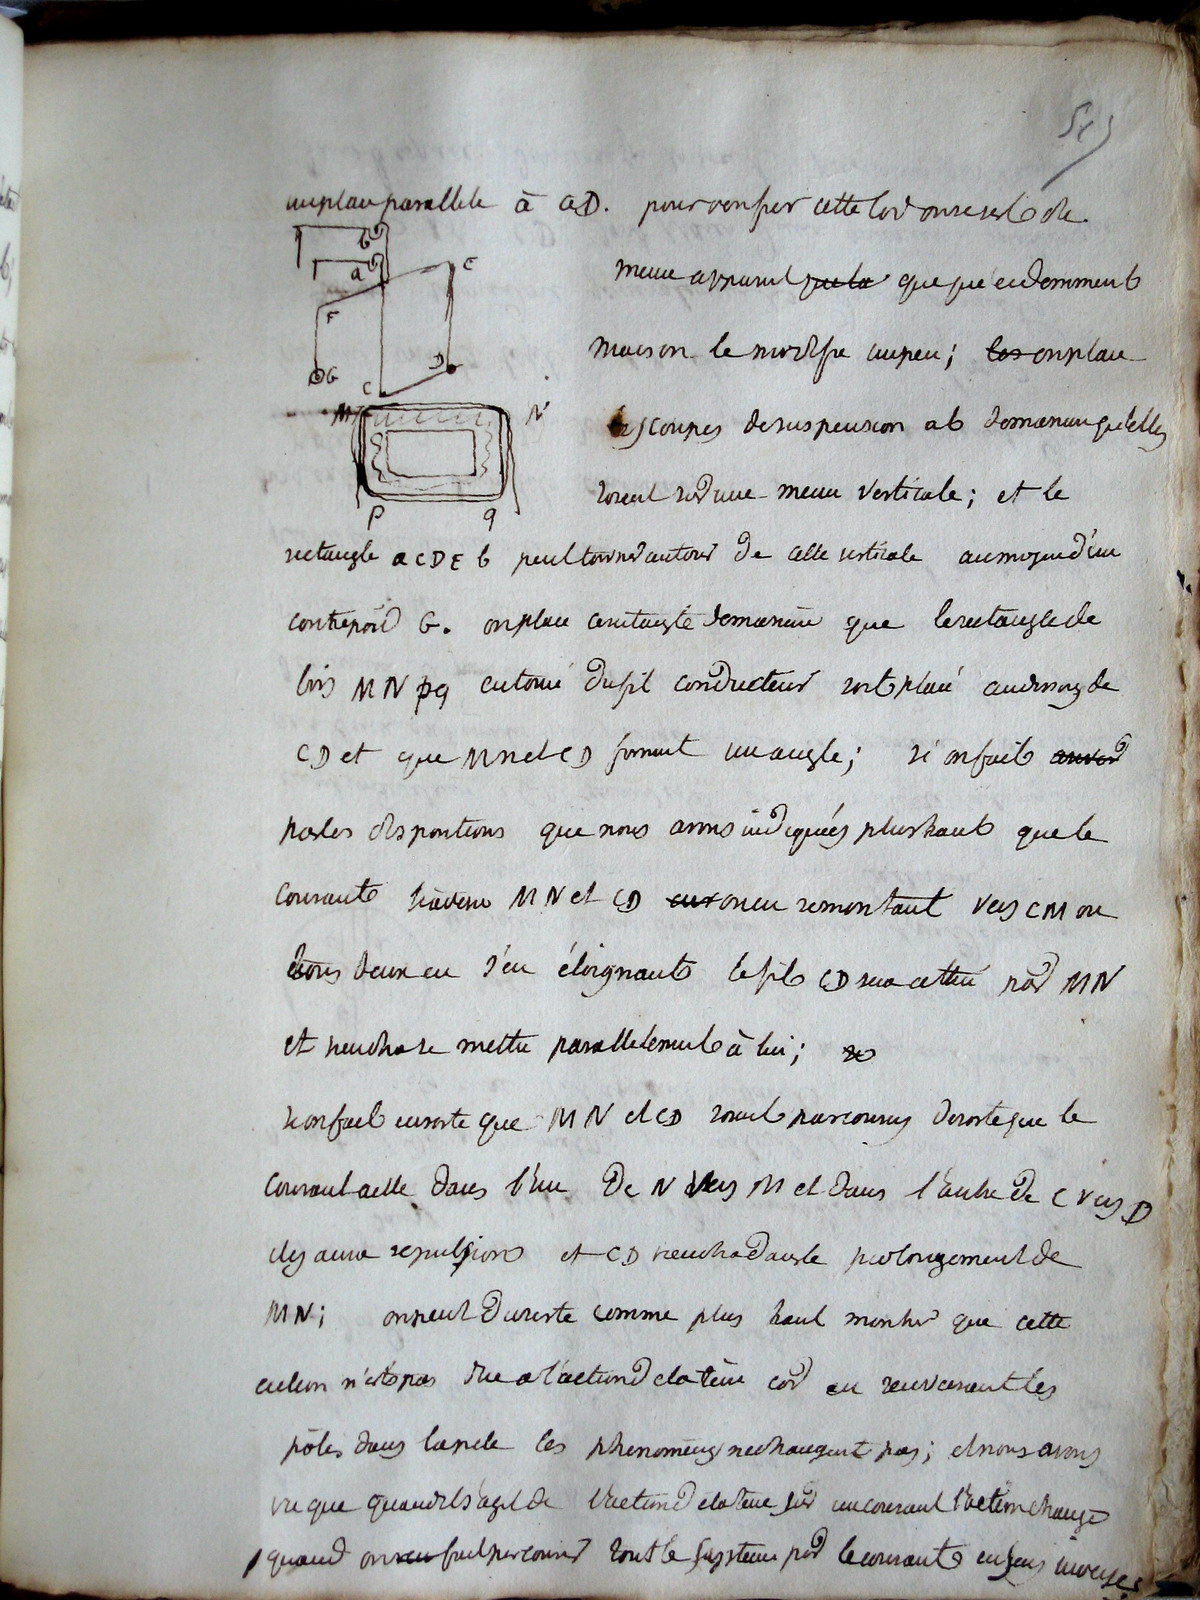 un plan parallele à CD. pour verifier cette loi on se sert de
meme appareil que précedemment
mais on le modifie un peu; on place
les coupes de suspension ab de maniere qu'elles
soient sur une meme verticale; et le
rectangle aCDEb peut tourner autour de cette verticale au moyen d'un
contrepoid G. on place ce rectangle de maniere que le rectangle de
bois MNpq entouré du fil conducteur soit placé au dessous de
CD et que MN et CD forment un angle; si on fait
par les dispositions que nous avons indiquées plus haut que le
courant traverse MN et CD ou en remontant vers CM ou
tous deux en s'en éloignant le fil CD sera attiré par MN
et viendra se mettre parallelement à lui;
si on fait ensorte que MN et CD soient parcourus de sorte que le
courant aille dans l'un de N vers M et dans l'autre de C vers D
il y aura repulsion et CD viendra dans le prolongement de
MN; on peut du reste comme plus haut montrer que cette
action n'est pas due a l'action de la terre car en renversant les
pôles dans la pile les phenomènes ne changent pas; et nous avons
vu que quand il s'agit de l'action de la terre sur un courant l'action change
quand on fait parcourir tout le systeme par le courant en sens inverse
b
a
E
F
G
C
D
M N
p q